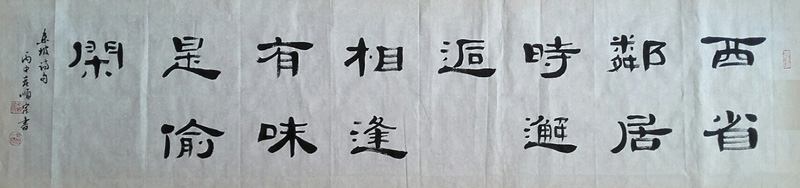 西省
鄰居
時邂
逅
相逢
有味
是偷
閑
東坡詩句
丙申 順 書